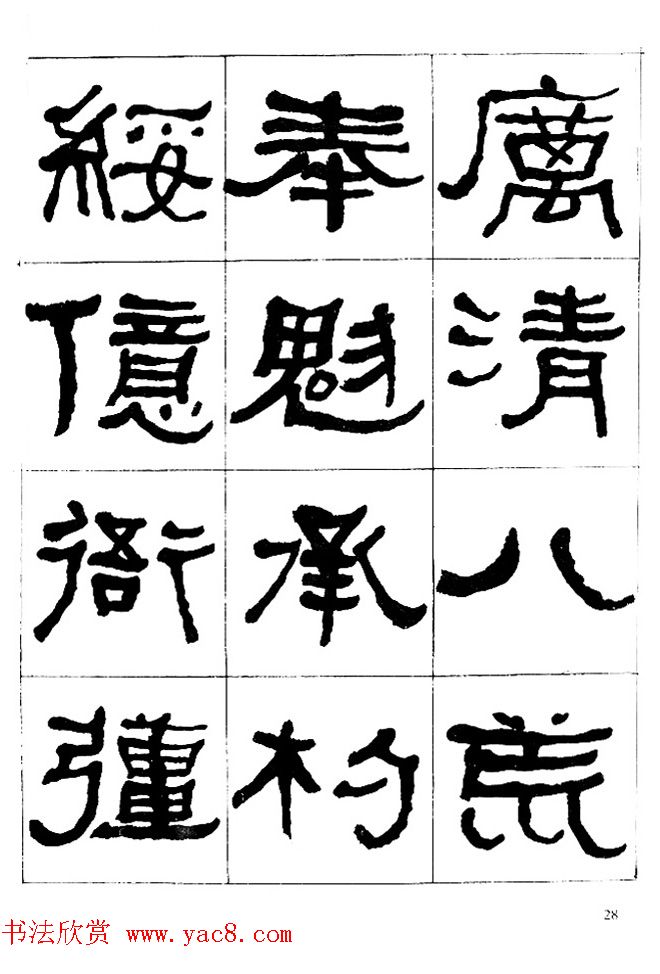 厲清八荒
奉魁承杓
綏億衙彊
28
书法欣赏 www.yac8.com